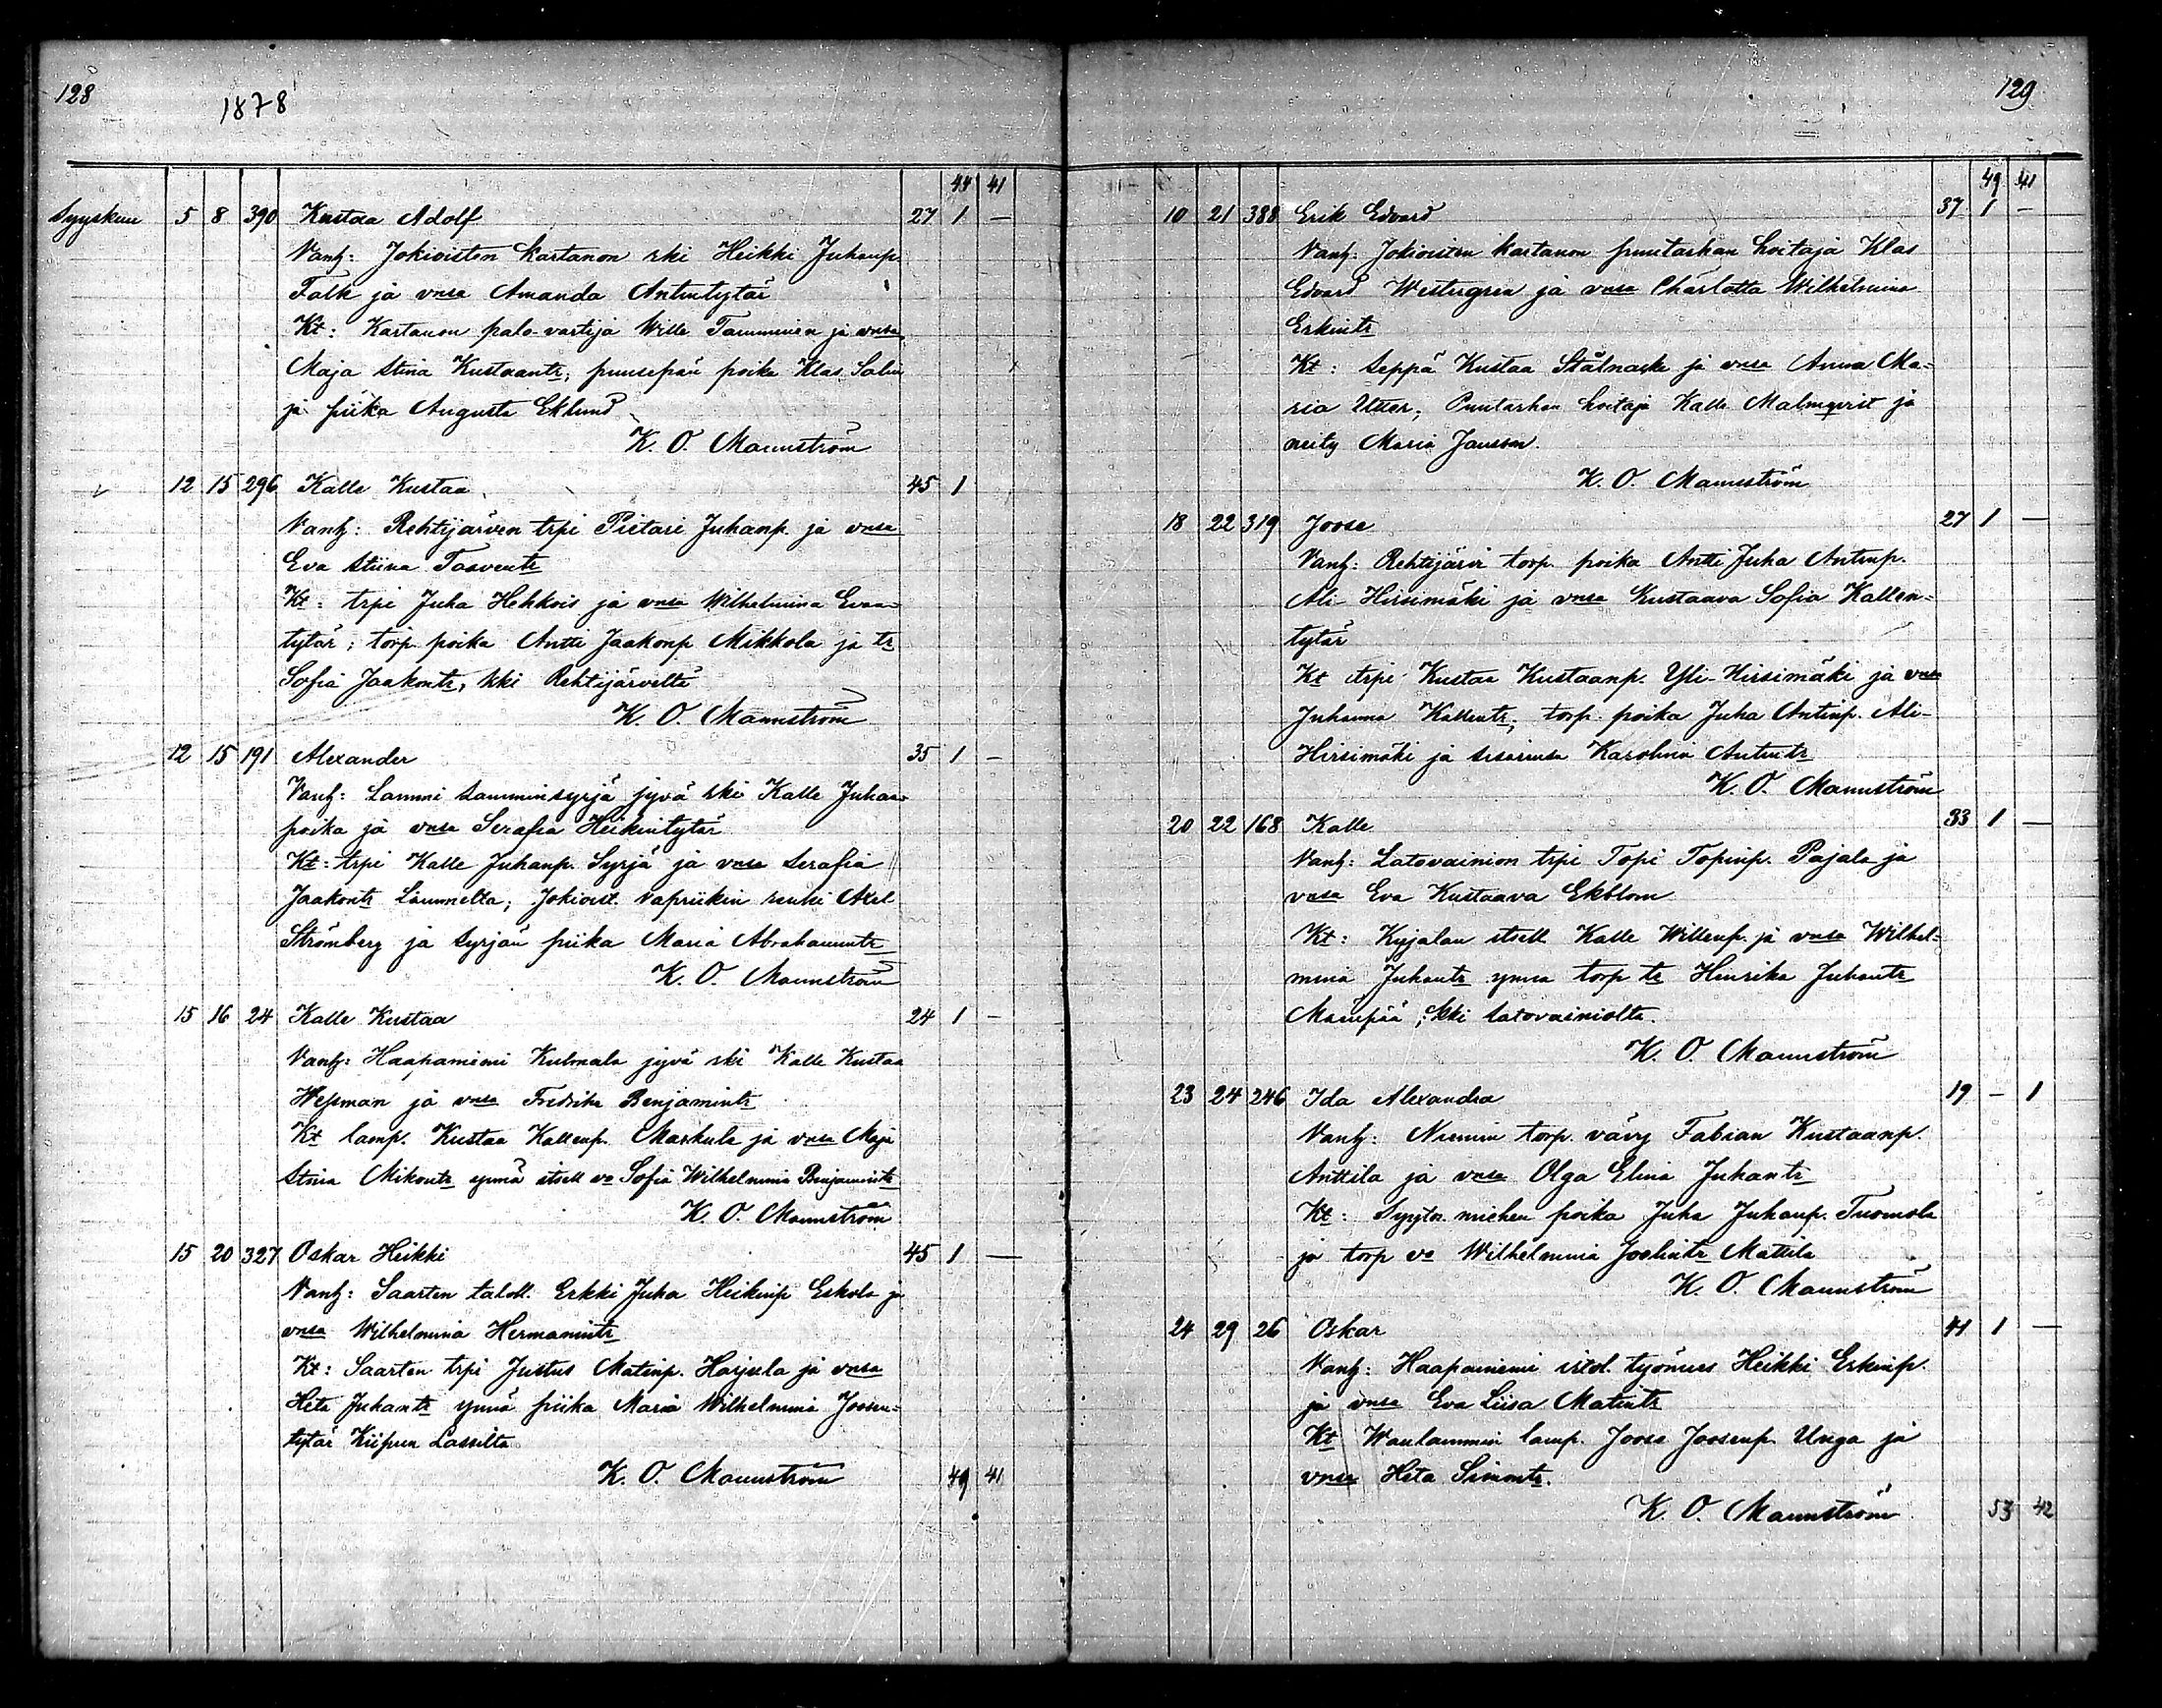 128
1878
44 41
Syyskuu 5 8 390 Kustaa Adolf 27 1 —
Vanh: Jokioisten Kartanon rki Heikki Juhanp.
Falk ja vnsa Amanda Antintytär
Kt: Kartanon palo-vartija Wille Tamminen ja vnsa
Maja Stina Kustaantr; puusepän poika Klas Salin
ja piika Augusta Eklund
K. O. Mannström
12 15 296 Kalle Kustaa 45 1
Vanh: Rehtijärven trpi Pietari Juhanp. ja vnsa
Eva Stiina
Kt: trpi Juha Hehkois ja vnsa Wilhelmina Evan-
tytär; torp. poika Antti Jaakonp Mikkola ja tr
Sofia Jaakontr, kki Rehtijärveltä
K. O. Mannström
12 15 191 Alexander 35 1 —
Vanh: Lammi Lamminsyrjä jyvä rki Kalle Juhan-
poika ja vnsa Serafia Heikintytär
Kt: trpi Kalle Juhanp. Syrjä ja vnsa Serafia
Jaakontr Lammelta; Jokioist. Vapriikin renki Axel
Strömberg ja Syrjän piika Maria Abrahamintr
K. O. Mannström
15 16 24 Kalle Kustaa 24 1 —
Vanh: Haapaniemi Kulmala jyvä rki Kalle Kustaa
Wessman ja vnsa Fredrika Benjamintr
Kt lamp. Kustaa Kallenp. Markula ja vnsa Maja
Stina Mikontr ynnä itsell vo Sofia Wilhelmina Benjamintr
K. O. Mannström
15 20 327 Oskar Heikki 45 1 —
Vanh: Saarten taloll. Erkki Juha Heikinp Eskola ja
vnsa Wilhelmina Hermanintr
Kt: Saarten trpi Justus Matinp. Harjula ja vnsa
Heta Juhantr ynnä piika Maria Wilhelmina Joosen-
tytär Kiipun Lassilta
K. O. Mannström 49 41
129
49 41
10 21 388 Erik Edvard 37 1 —
Vanh: Jokioisten kartanon puutarhan hoitaja Klas
Edvard Westergren ja vnsa Charlotta Wilhelmina
Erkintr
Kt: Seppä Kustaa Stålnacke ja vnsa Anna Ma-
ria Utter; Puutarhan hoitaja Kalle Malmqvist ja
neity Maria Jansson
K. O. Mannström
18 22 319 Joose 27 1 —
Vanh: Rehtijärvi torp. poika Antti Juha Antinp.
Ali-Hirsimäki ja vnsa Kustaava Sofia Kallen-
tytär
Kt trpi Kustaa Kustaanp. Yli-Hirsimäki ja vnsa
Juhanna Kallentr; torp. poika Juha Antinp. Ali-
Hirsimäki ja sisarensa Karolina Antintr
K. O. Mannström
20 22 168 Kalle 33 1 —
Vanh: Latovainion trpi Topi Topinp. Pajala ja
vnsa Eva Kustaava Ekblom
Kt: Kyjalan itsell Kalle Willenp. ja vnsa Wilhel-
mina Juhantr ynnä torp tr Henrika Juhantr
Mäenpää; kki Latovainiolta.
K. O. Mannström
23 24 246 Ida Alexandra 19 — 1
Vanh: Niemin torp. vävy Fabian Kustaanp.
Anttila ja vnsa Olga Elina Juhantr
Kt: Syytin miehen poika Juha Juhanp. Tuomola
ja torp vo Wilhelmina Joelintr Mattila
K. O. Mannström
24 29 26 Oskar 41 1 —
Vanh: Haapaniemi irtol. työmies Heikki Erkinp.
ja vnsa Eva Liisa Matintr
Kt Waulammin lamp. Joose Joosenp Unga ja
vnsa Heta Simontr.
K. O. Mannström 53 42